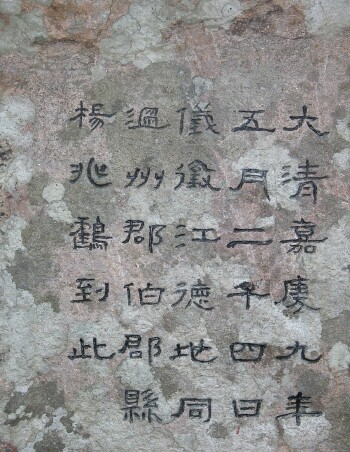 大清嘉慶九年
五月二千四日
儀徵江德地同
過州郡伯郡縣
楊兆鶴到此